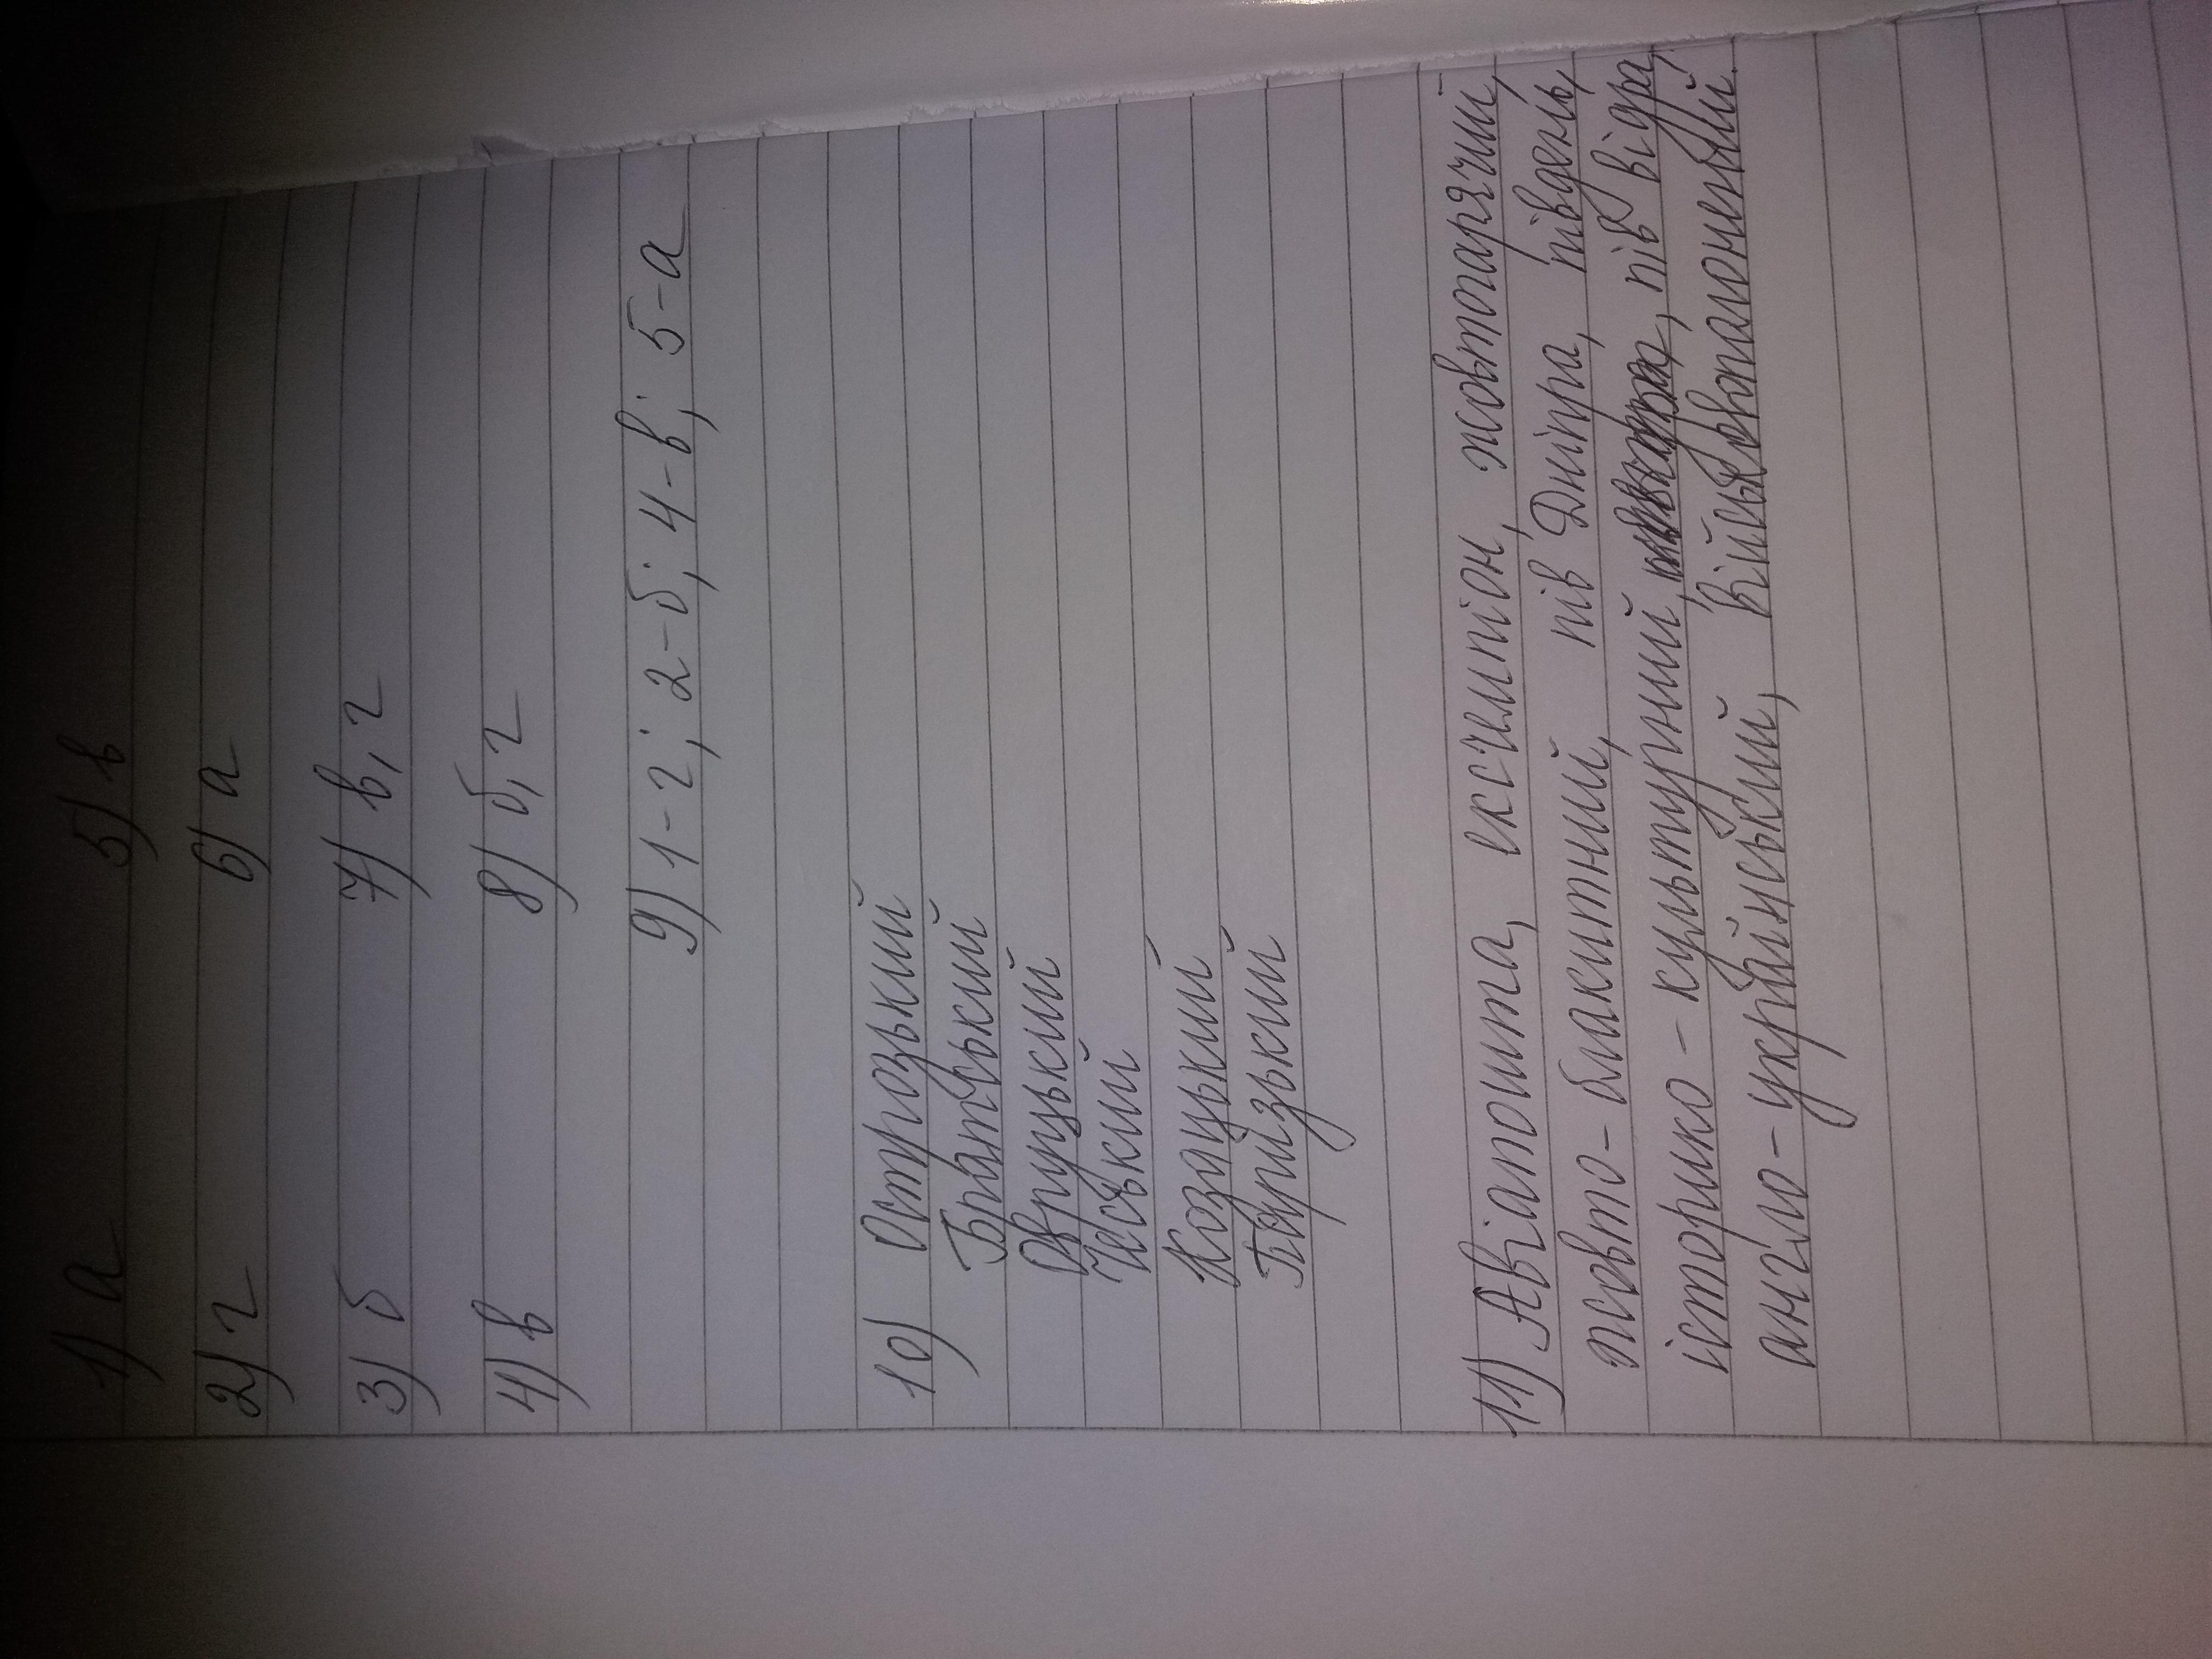 1) а 5) в
2) г 6) а
3) б 7) в, г
4) в 8) б, г
9) 1-г; 2-б; 4-в; 5-а
10) Острозький
Братський
Овруцький
Чеський
Козацький
Паризький
11) Авіапошта, ексчемпіон, жовтогарячий,
жовто-блакитний, пів Дніпра, південь,
історико-культурний, пів відра,
англо-український, військовополонений.